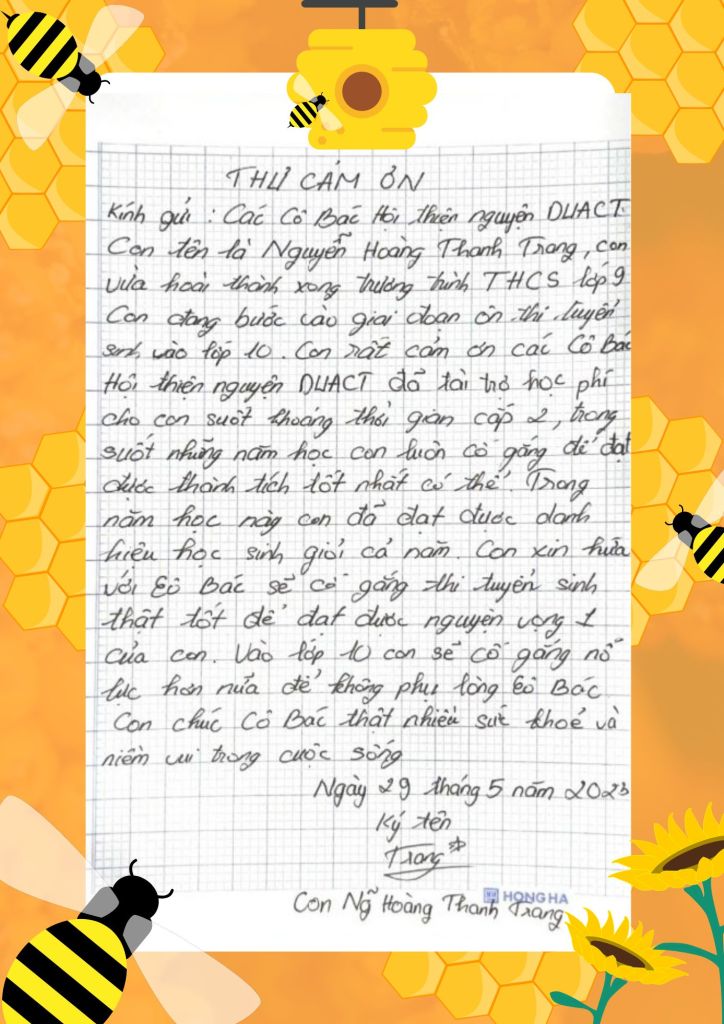 THƯ CẢM ƠN
Kính gửi : Các Cô Bác Hội thiện nguyện DUACT.
Con tên là Nguyễn Hoàng Thanh Trang, con
vừa hoài thành xong trương trình THCS lớp 9
Con đang bước vào giai đoạn ôn thi tuyển
sinh vào lớp 10. Con rất cảm ơn các Cô Bác
Hội thiện nguyện DUACT đã tài trợ học phí
cho con suốt khoảng thời gian cấp 2, trong
suốt những năm học con luôn cố gắng để đạt
được thành tích tốt nhất có thể. Trong
năm học này con đã đạt được danh
hiệu học sinh giỏi cả năm. Con xin hứa
với Cô Bác sẽ cố gắng thi tuyển sinh
thật tốt để đạt được nguyện vọng 1
của con. Vào lớp 10 con sẽ cố gắng nỗ
lực hơn nữa để không phụ lòng Cô Bác
Con chúc Cô Bác thật nhiều sức khoẻ và
niềm vui trong cuộc sống
Ngày 29 tháng 5 năm 2023
Ký tên
Trang
HONG HA
Con Ng~ Hoàng Thanh Trang